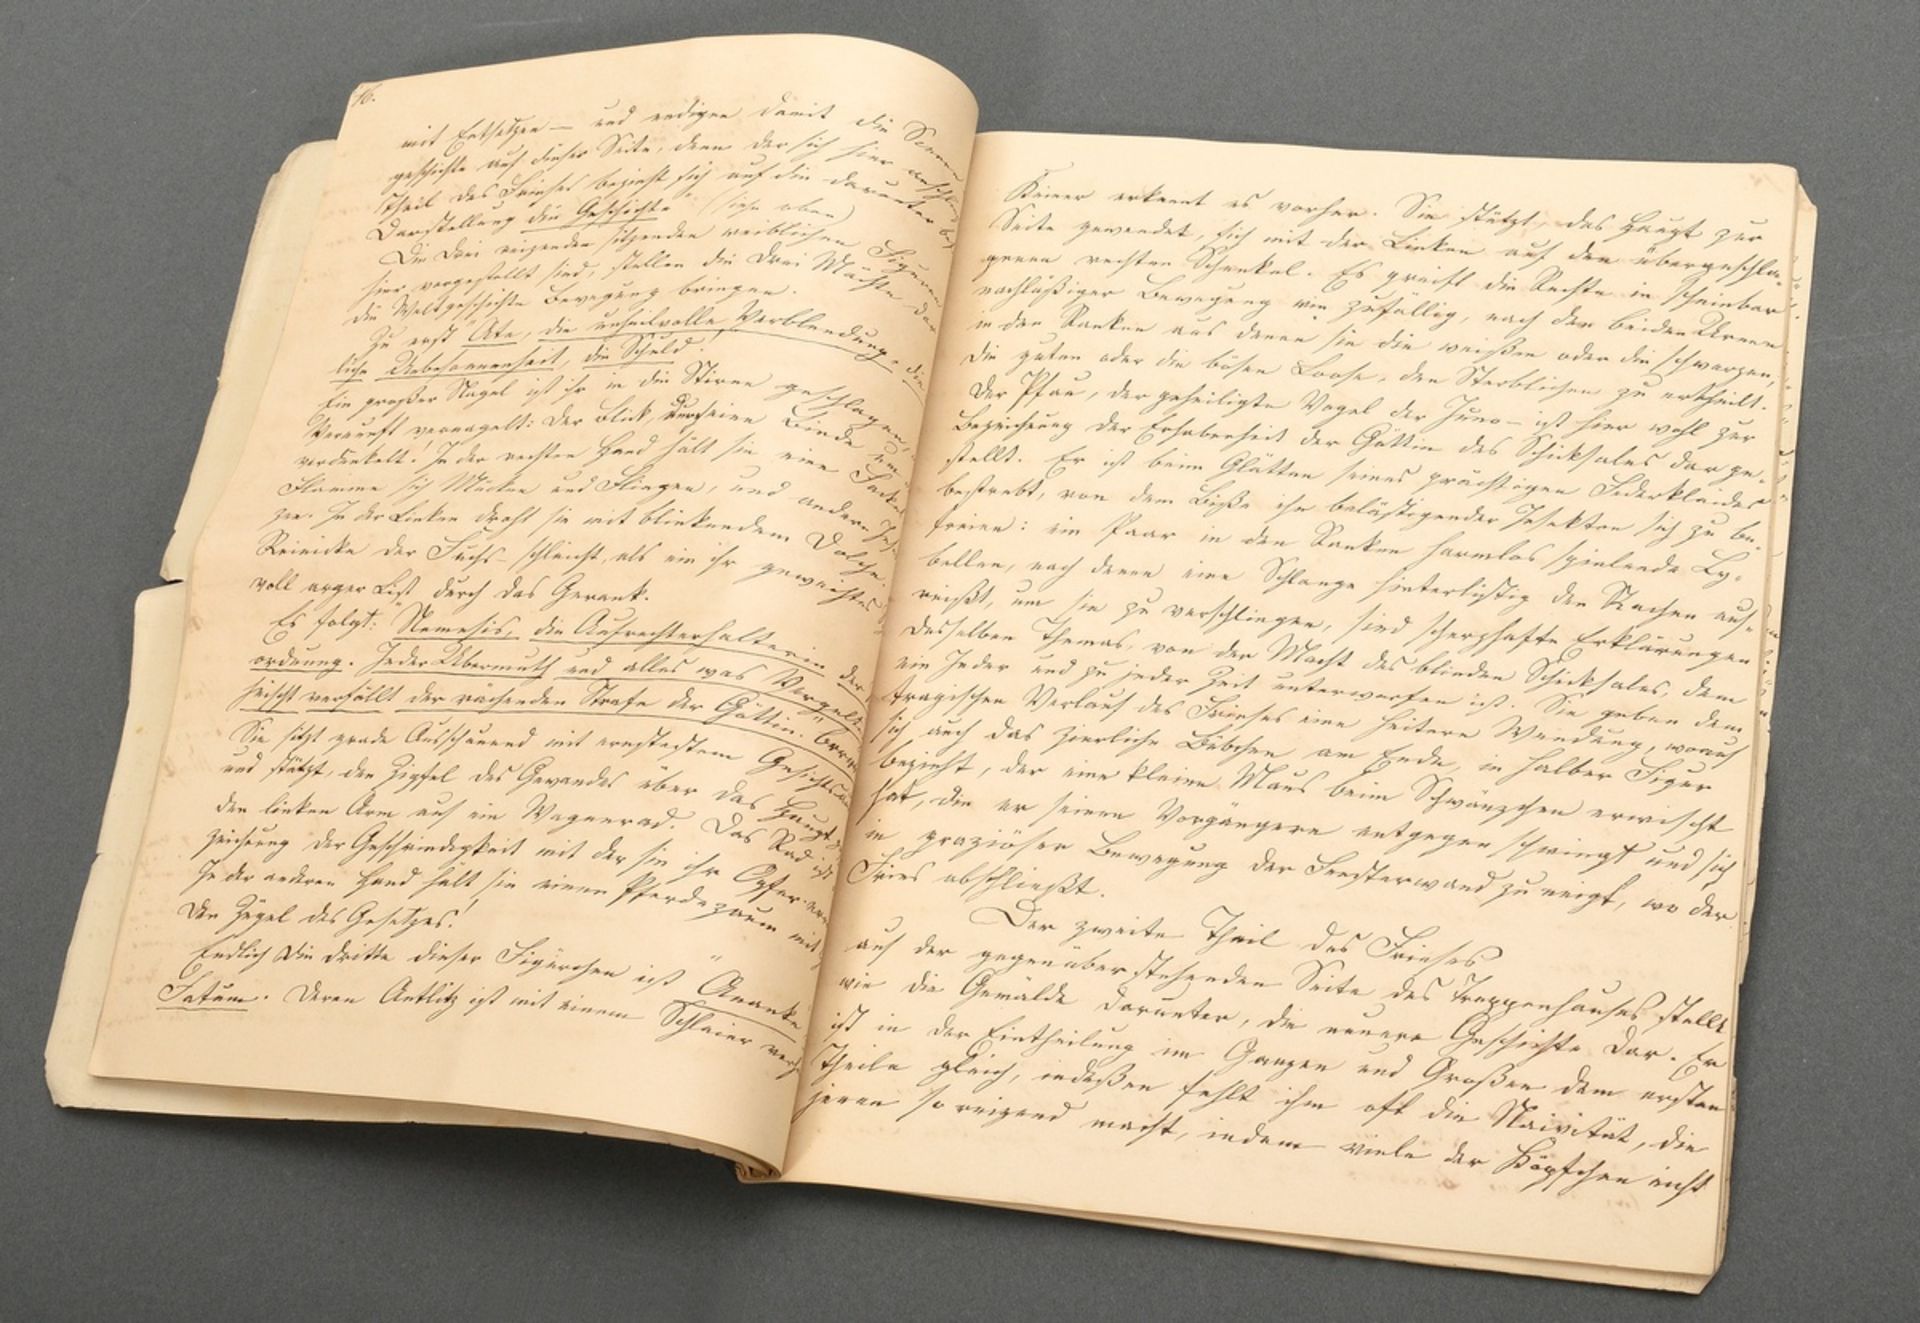 16.
mit Entsetzen — und endigen damit die Scenen
geschichte auf dieser Seite, denn der sich hier anschlie
Theil des Frieses bezieht sich auf die darunter be
Darstellung die Geschichte (siehe oben)
Die drei reizenden sitzenden weiblichen Figuren
hier vorgestellt sind, stellen die drei Mächte dar
die Weltgeschichte Bewegung bringen.
Zu erst "Ate, die unheilvolle Verblendung, die
liche Unbesonnenheit, die Schuld.
Ein großer Nagel ist ihr in die Stirne geschlagen,
Vernunft vernagelt: der Blick, durch eine Binde um
verdunkelt! In der rechten Hand hält sie eine Fackel
Flamme sich Mücken und Fliegen, und andere
gen. In der Linken droht sie mit blinkendem Dolche.
Reinicke der Fuchs schleicht, als ein ihr geweihtes
voll arger List durch das Gerank.
Es folgt: Nemesis, die Aufrechterhalterin der
ordnung. Jeder Übermuth und alles was Vergelt
heischt verfällt der rächenden Strafe der Göttin.
Sie sitzt grade Ausschauend mit ernstestem Gesichtsau
und stützt, den Zipfel des Gewandes über das Haupt
den linken Arm auf ein Wagenrad. Das Rad ist
zeichnung der Geschwindigkeit mit der sie ihr Opfer
In der anderen Hand hält sie einen Pferdezaum mit
den Zügel des Gesetzes!
Endlich die dritte dieser Figürchen ist "Ananke
Fatum. Deren Antlitz ist mit einem Schleier verh
Keiner erkennt es vorher. Sie stützt, das Haupt zur
Seite gewendet, sich mit der Linken auf den übergeschla-
genen rechten Schenkel. Es greift die Rechte in scheinbar
nachläßiger Bewegung wie zufällig, nach den beiden Urnen
in den Ranken aus denen sie die weißen oder die schwarzen,
die guten oder die bösen Loose, den Sterblichen zu ertheilt.
Der Pfau, der geheiligte Vogel der Juno — ist hier wohl zur
Bezeichnung der Erhabenheit der Göttin des Schicksales dar ge-
stellt. Er ist beim Glätten seines prächtigen Federkleides
bestrebt, von dem Biße ihn belästigender Insekten sich zu be-
freien: ein Paar in den Ranken harmlos spielende Ly-
bellen, nach denen eine Schlange hinterlistig den Rachen auf-
reißt, um sie zu verschlingen, sind scherzhafte Erklärungen
desselben Themas, von der Macht des blinden Schicksales, dem
ein Jeder und zu jeder Zeit unterworfen ist. Sie geben dem
tragischen Verlauf des Frieses eine heitere Wendung, worauf
sich auch das zierliche Bübchen am Ende, in halber Figur
bezieht, der eine kleine Maus beim Schwänzchen erwischt
hat, die er seinen Vorgängern entgegen schwingt und sich
in graziöser Bewegung der Fensterwand zu neigt, wo der
Fries abschließt.
Der zweite Theil des Frieses
auf der gegenüberstehenden Seite des Treppenhauses stellt
wie die Gemälde darunter, die neuere Geschichte dar. Er
ist in der Eintheilung im Ganzen und Großen dem ersten
Theile gleich, indeßen fehlt ihm oft die Naivität, die
jenen so reizend macht, indem viele der Köpfchen nicht